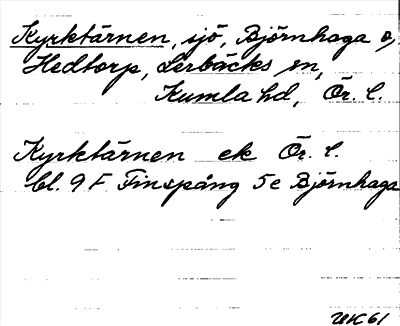 Kyrktärnen, sjö, Björnhaga o,
Hedtorp, Lerbäcks sn,
Kumla hd, Ör. l.
Kyrktärnen ek Ör. l.
bl. 9 F Finspång 5 c Björnhaga
UK 61